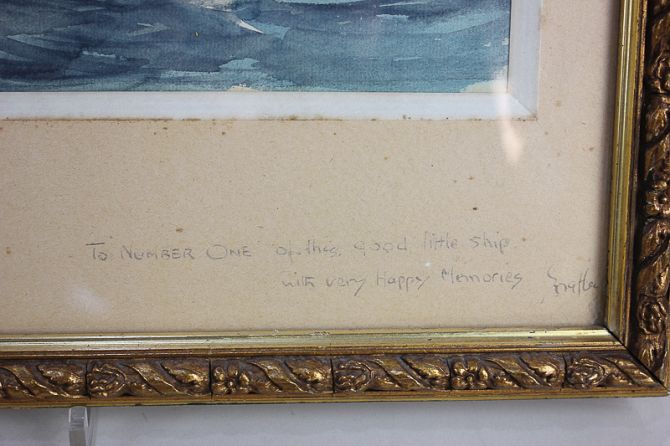 To NUMBER ONE of this good little ship.
with very Happy Memories